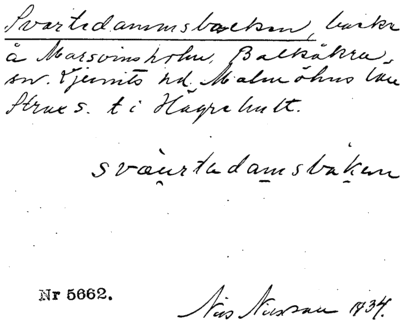 Svartedammsbacken, backe
å Marsvinsholm, Balkåkra
sn. Ljunits hd. Malmöhus län
Strax s. t i Högrehult.
svàurtədamsbakən
Nr 5662.
Nils Nilsson 1934.